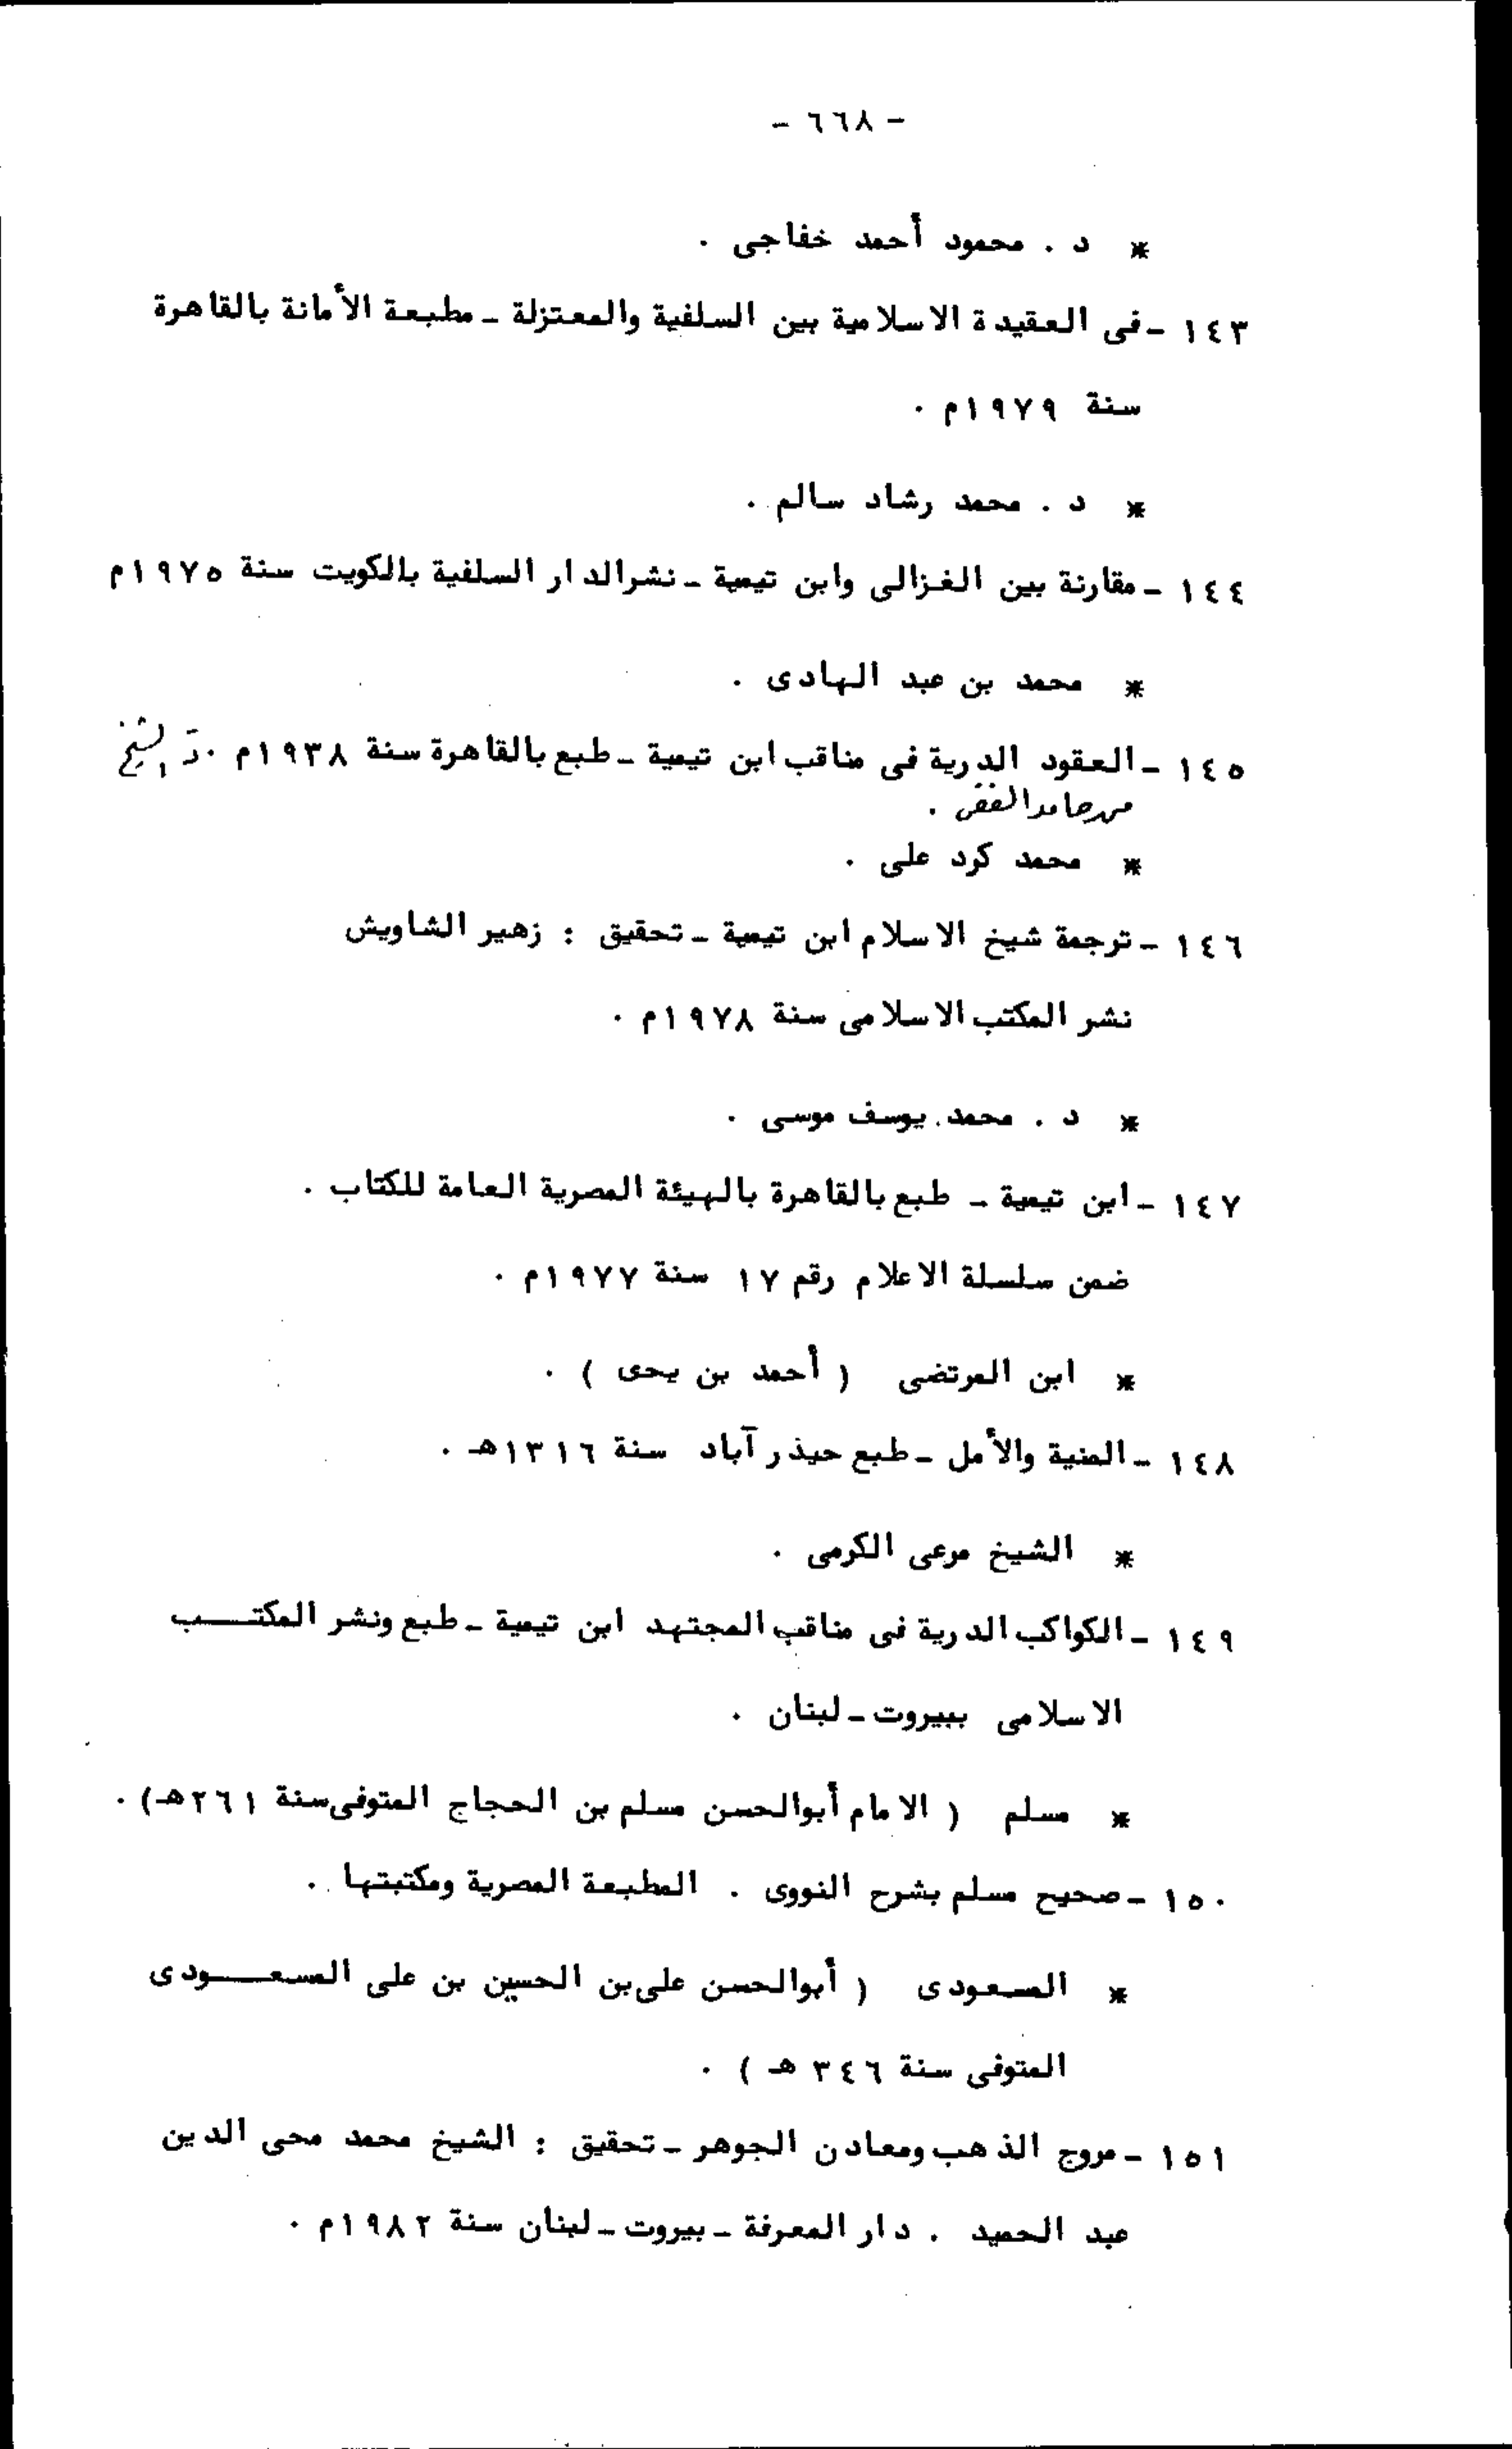 - ٦٦٨ -
* د . محمود أحمد خفاجى .
١٤٣ - فى العقيدة الاسلامية بين السلفية والمعتزلة - مطبعة الأمانة بالقاهرة
سنة ١٩٧٩م .
* د . محمد رشاد سالم .
١٤٤ - مقارنة بين الغزالى وابن تيمية - نشرالدار السلفية بالكويت سنة ١٩٧٥م
* محمد بن عبد الهادى .
١٤٥ - العقود الدرية فى مناقب ابن تيمية - طبع بالقاهرة سنة ١٩٣٨م . الشيخ
حامد الفقى .
* محمد كرد على .
١٤٦ - ترجمة شيخ الاسلام ابن تيمية - تحقيق : زهير الشاويش
نشر المكتب الاسلامى سنة ١٩٧٨م .
* د . محمد يوسف موسى .
١٤٧ - ابن تيمية - طبع بالقاهرة بالهيئة المصرية العامة للكتاب .
ضمن سلسلة الاعلام رقم ١٧ سنة ١٩٧٧م .
* ابن المرتضى ( أحمد بن يحى ) .
١٤٨ - المنية والأمل - طبع حيذر آباد سنة ١٣١٦هـ .
* الشيخ مرعى الكرمى .
١٤٩ - الكواكب الدرية فى مناقب المجتهد ابن تيمية - طبع ونشر المكتــب
الاسلامى ببيروت - لبنان .
* مسلم ( الامام أبوالحسن مسلم بن الحجاج المتوفى سنة ٢٦١هـ) .
١٥٠ - صحيح مسلم بشرح النووى . المطبعة المصرية ومكتبتها .
* المسعودى ( أبوالحسن على بن الحسين بن على المسعــودى
المتوفى سنة ٣٤٦ هـ ) .
١٥١ - مروج الذهب ومعادن الجوهر - تحقيق : الشيخ محمد محى الدين
عبد الحميد . دار المعرفة - بيروت - لبنان سنة ١٩٨٢م .